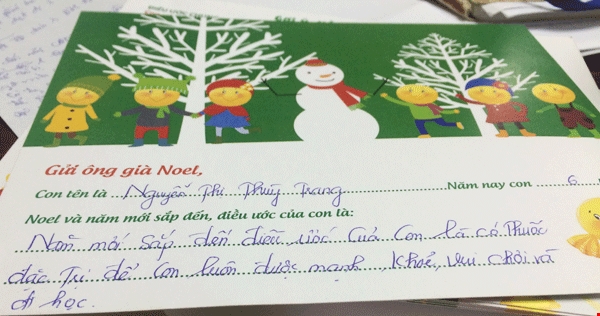 Gửi ông già Noel,
Con tên là Nguyễn Thị Thùy Trang Năm nay con 6
Noel và năm mới sắp đến, điều ước của con là:
Năm mới sắp đến điều ước của con là có thuốc
đặc trị để con luôn được mạnh khoẻ, vui chơi và
đi học.